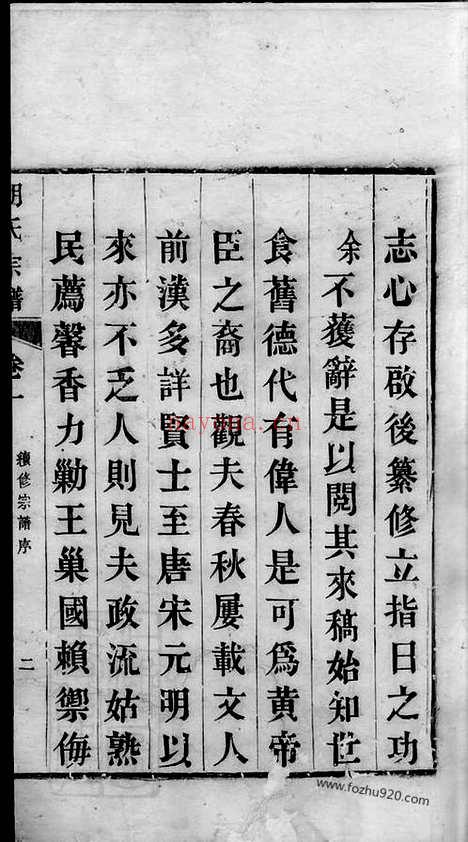 志心存啟後纂修立指日之功
余不獲辭是以閱其來稿始知世
食舊德代有偉人是可爲黃帝
臣之裔也觀夫春秋屢載文人
前漢多詳賢士至唐宋元明以
來亦不乏人則見夫政流姑熟
民薦馨香力勦王巢國賴禦侮
胡氏宗譜 卷一 續修宗譜序 二
nayona.cn
www.fozhu920.com